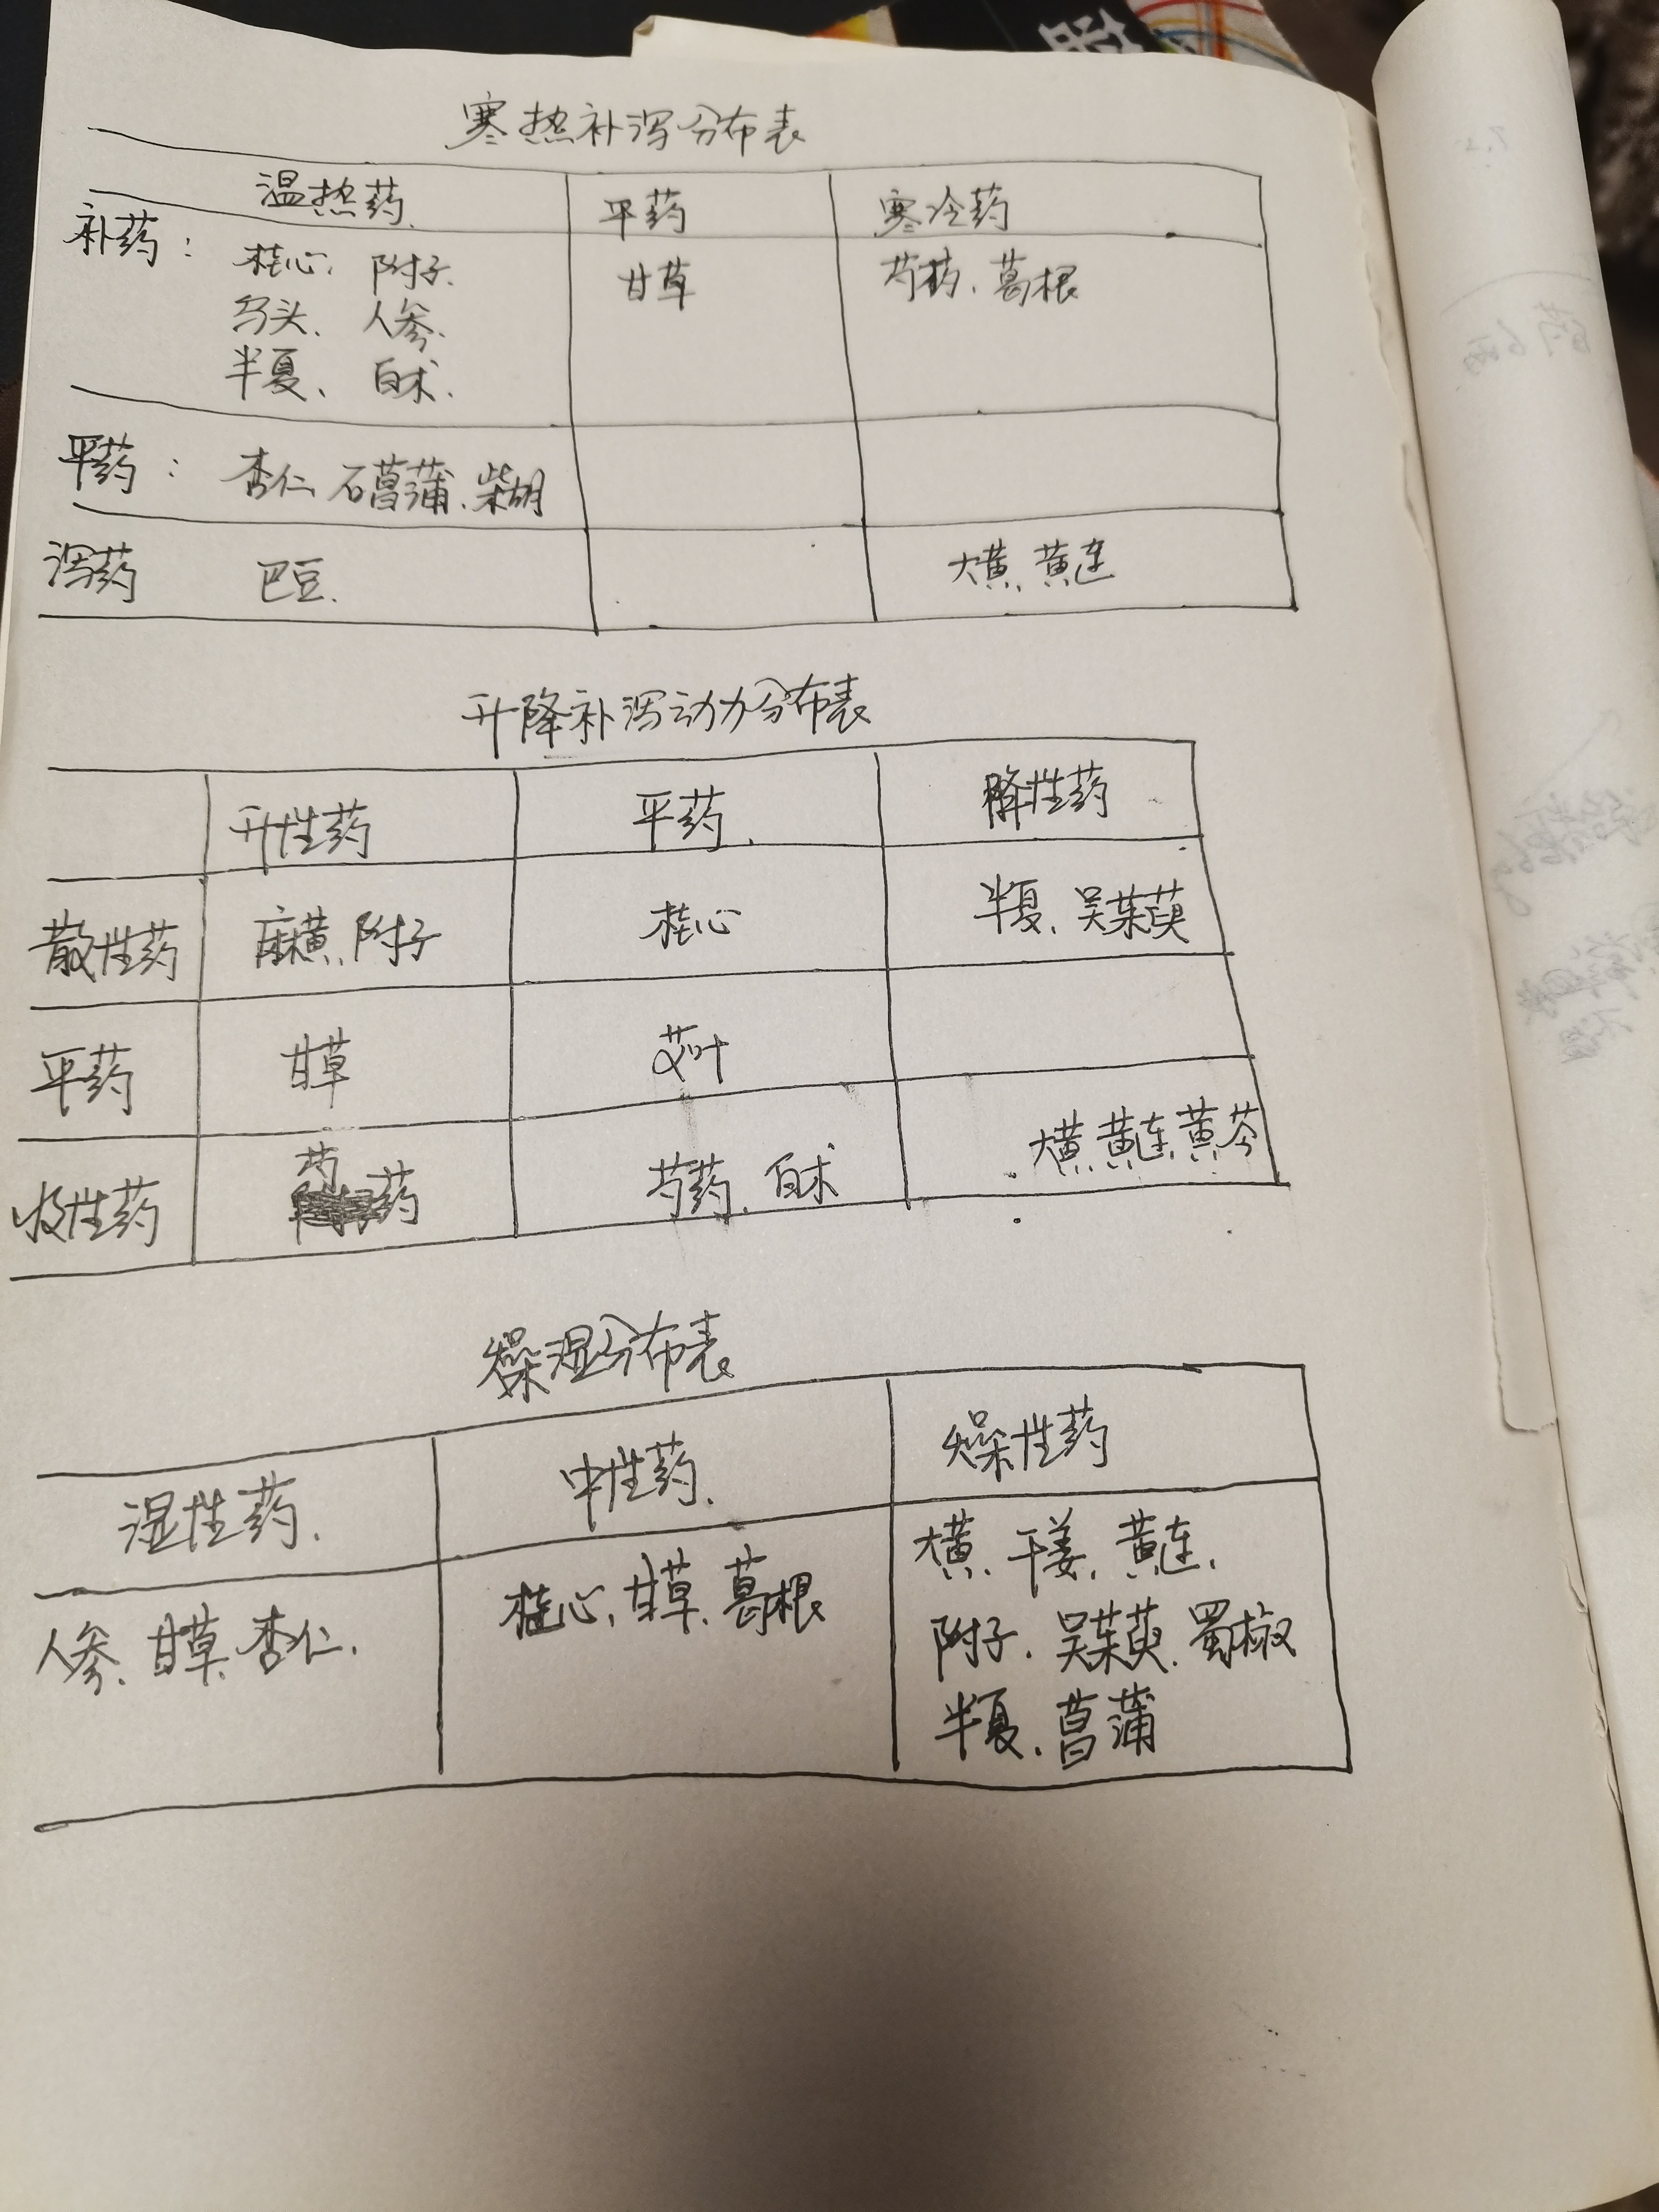 寒热补泻分布表
温热药 平药 寒冷药
补药： 桂心、附子、 甘草 芍药、葛根
乌头、人参、
半夏、白术、
平药： 杏仁 石菖蒲、柴胡
泻药 巴豆、 大黄、黄连
升降补泻动力分布表
升性药 平药、 降性药
散性药 麻黄、附子 桂心 半夏、吴茱萸
平药 甘草 艾叶
收性药 芍药 芍药、白术 大黄、黄连、黄芩
燥湿分布表
湿性药、 中性药、 燥性药
人参、甘草、杏仁、 桂心、甘草、葛根 大黄、干姜、黄连、
附子、吴茱萸、蜀椒
半夏、菖蒲